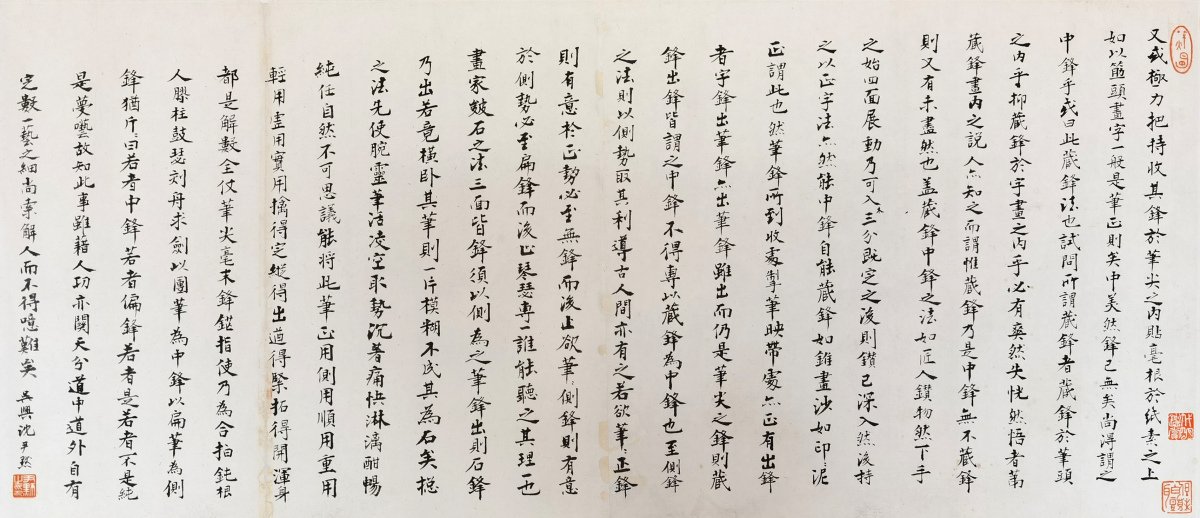 又或極力把持收其鋒於筆尖之內貼毫根於紙素之上
如以筯頭畫字一般是筆正則矣中美然鋒已無矣尚得謂之
中鋒乎或曰此藏鋒法也試問所謂藏鋒者藏鋒於筆頭
之內乎抑藏鋒於字畫之內乎必有爽然失恍然悟者第
藏鋒畫內之說人亦知之而謂惟藏鋒乃是中鋒無不藏鋒
則又有未盡然也蓋藏鋒中鋒之法如匠人鑽物然下手
之始四面展動乃可入三分既定之後則鑽已深入然後持
之以正字法亦然能中鋒自能藏鋒如錐畫沙如印〻泥
正謂此也然筆鋒所到收處掣筆映帶處亦正有出鋒
者字鋒出筆鋒亦出筆鋒雖出而仍是筆尖之鋒則藏
鋒出鋒皆謂之中鋒不得專以藏鋒為中鋒也至側鋒
之法則以側勢取其利導古人間亦有之若欲筆〻正鋒
則有意於正勢必至無鋒而後止欲筆〻側鋒則有意
於側勢必至扁鋒而後止琴瑟專一誰能聽之其理一也
畫家皴石之法三面皆鋒須以側為之筆鋒出則石鋒
乃出若竟橫臥其筆則一片模糊不成其為石矣總
之法先使腕靈筆活凌空取勢沉著痛快淋漓酣暢
純任自然不可思議能將此筆正用側用順用重用
輕用虛用實用擒得定縱得出遒得緊拓得開渾身
都是解數全仗筆尖毫末鋒鋩指使乃為合拍鈍根
人膠柱鼓瑟刻舟求劍以團筆為中鋒以扁筆為側
鋒猶斤〻曰若者中鋒若者偏鋒若者是若者不是純
是夢囈故知此事雖藉人功亦關天分道中道外自有
定數一藝之細尚索解人而不得噫難矣 吳興沈尹默